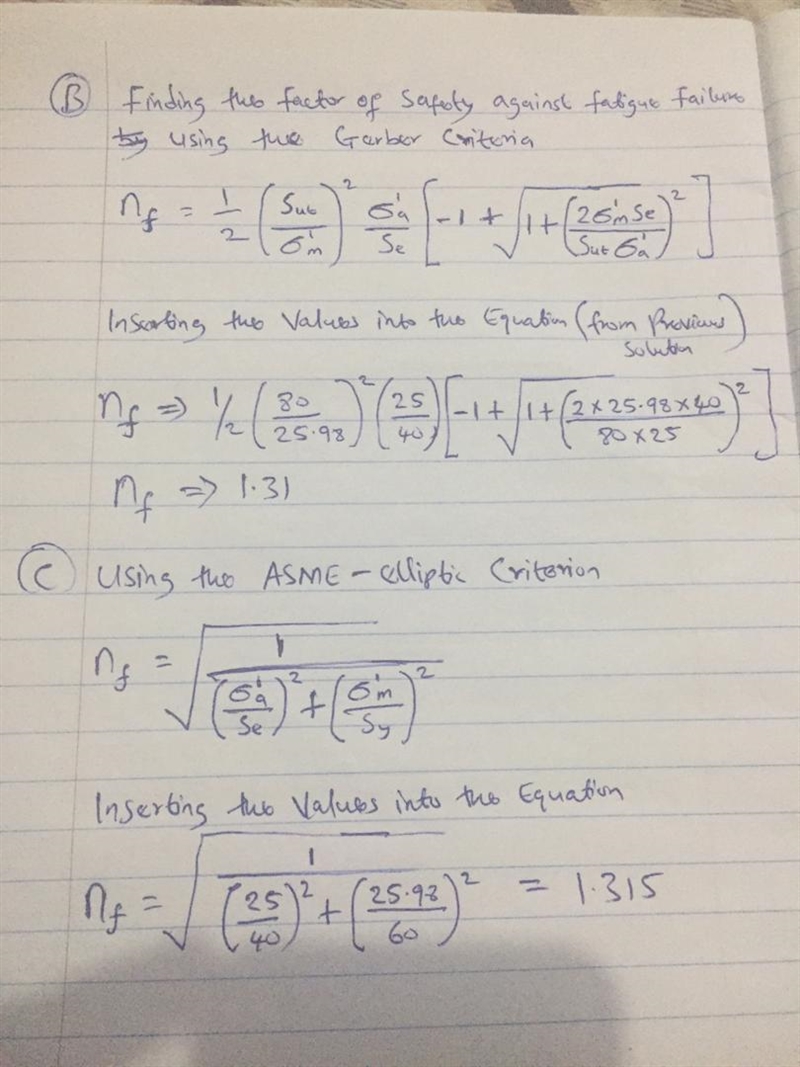 (B) Finding the factor of safety against fatigue failure
by using the Gerber Criteria
nf = 1/2 (Sut/σ'm)² σ'a/Se [-1 + √(1 + (2σ'm Se/Sut σ'a)²)]
Inserting the Values into the Equation (from Previous
Solution)
nf => 1/2 (80/25.98)² (25/40) [-1 + √(1 + (2 × 25.98 × 40/80 × 25)²)]
nf => 1.31
(C) Using the ASME - elliptic Criterion
nf = √(1/((σ'a/Se)² + (σ'm/Sy)²))
Inserting the Values into the Equation
nf = √(1/((25/40)² + (25.98/60)²)) = 1.315